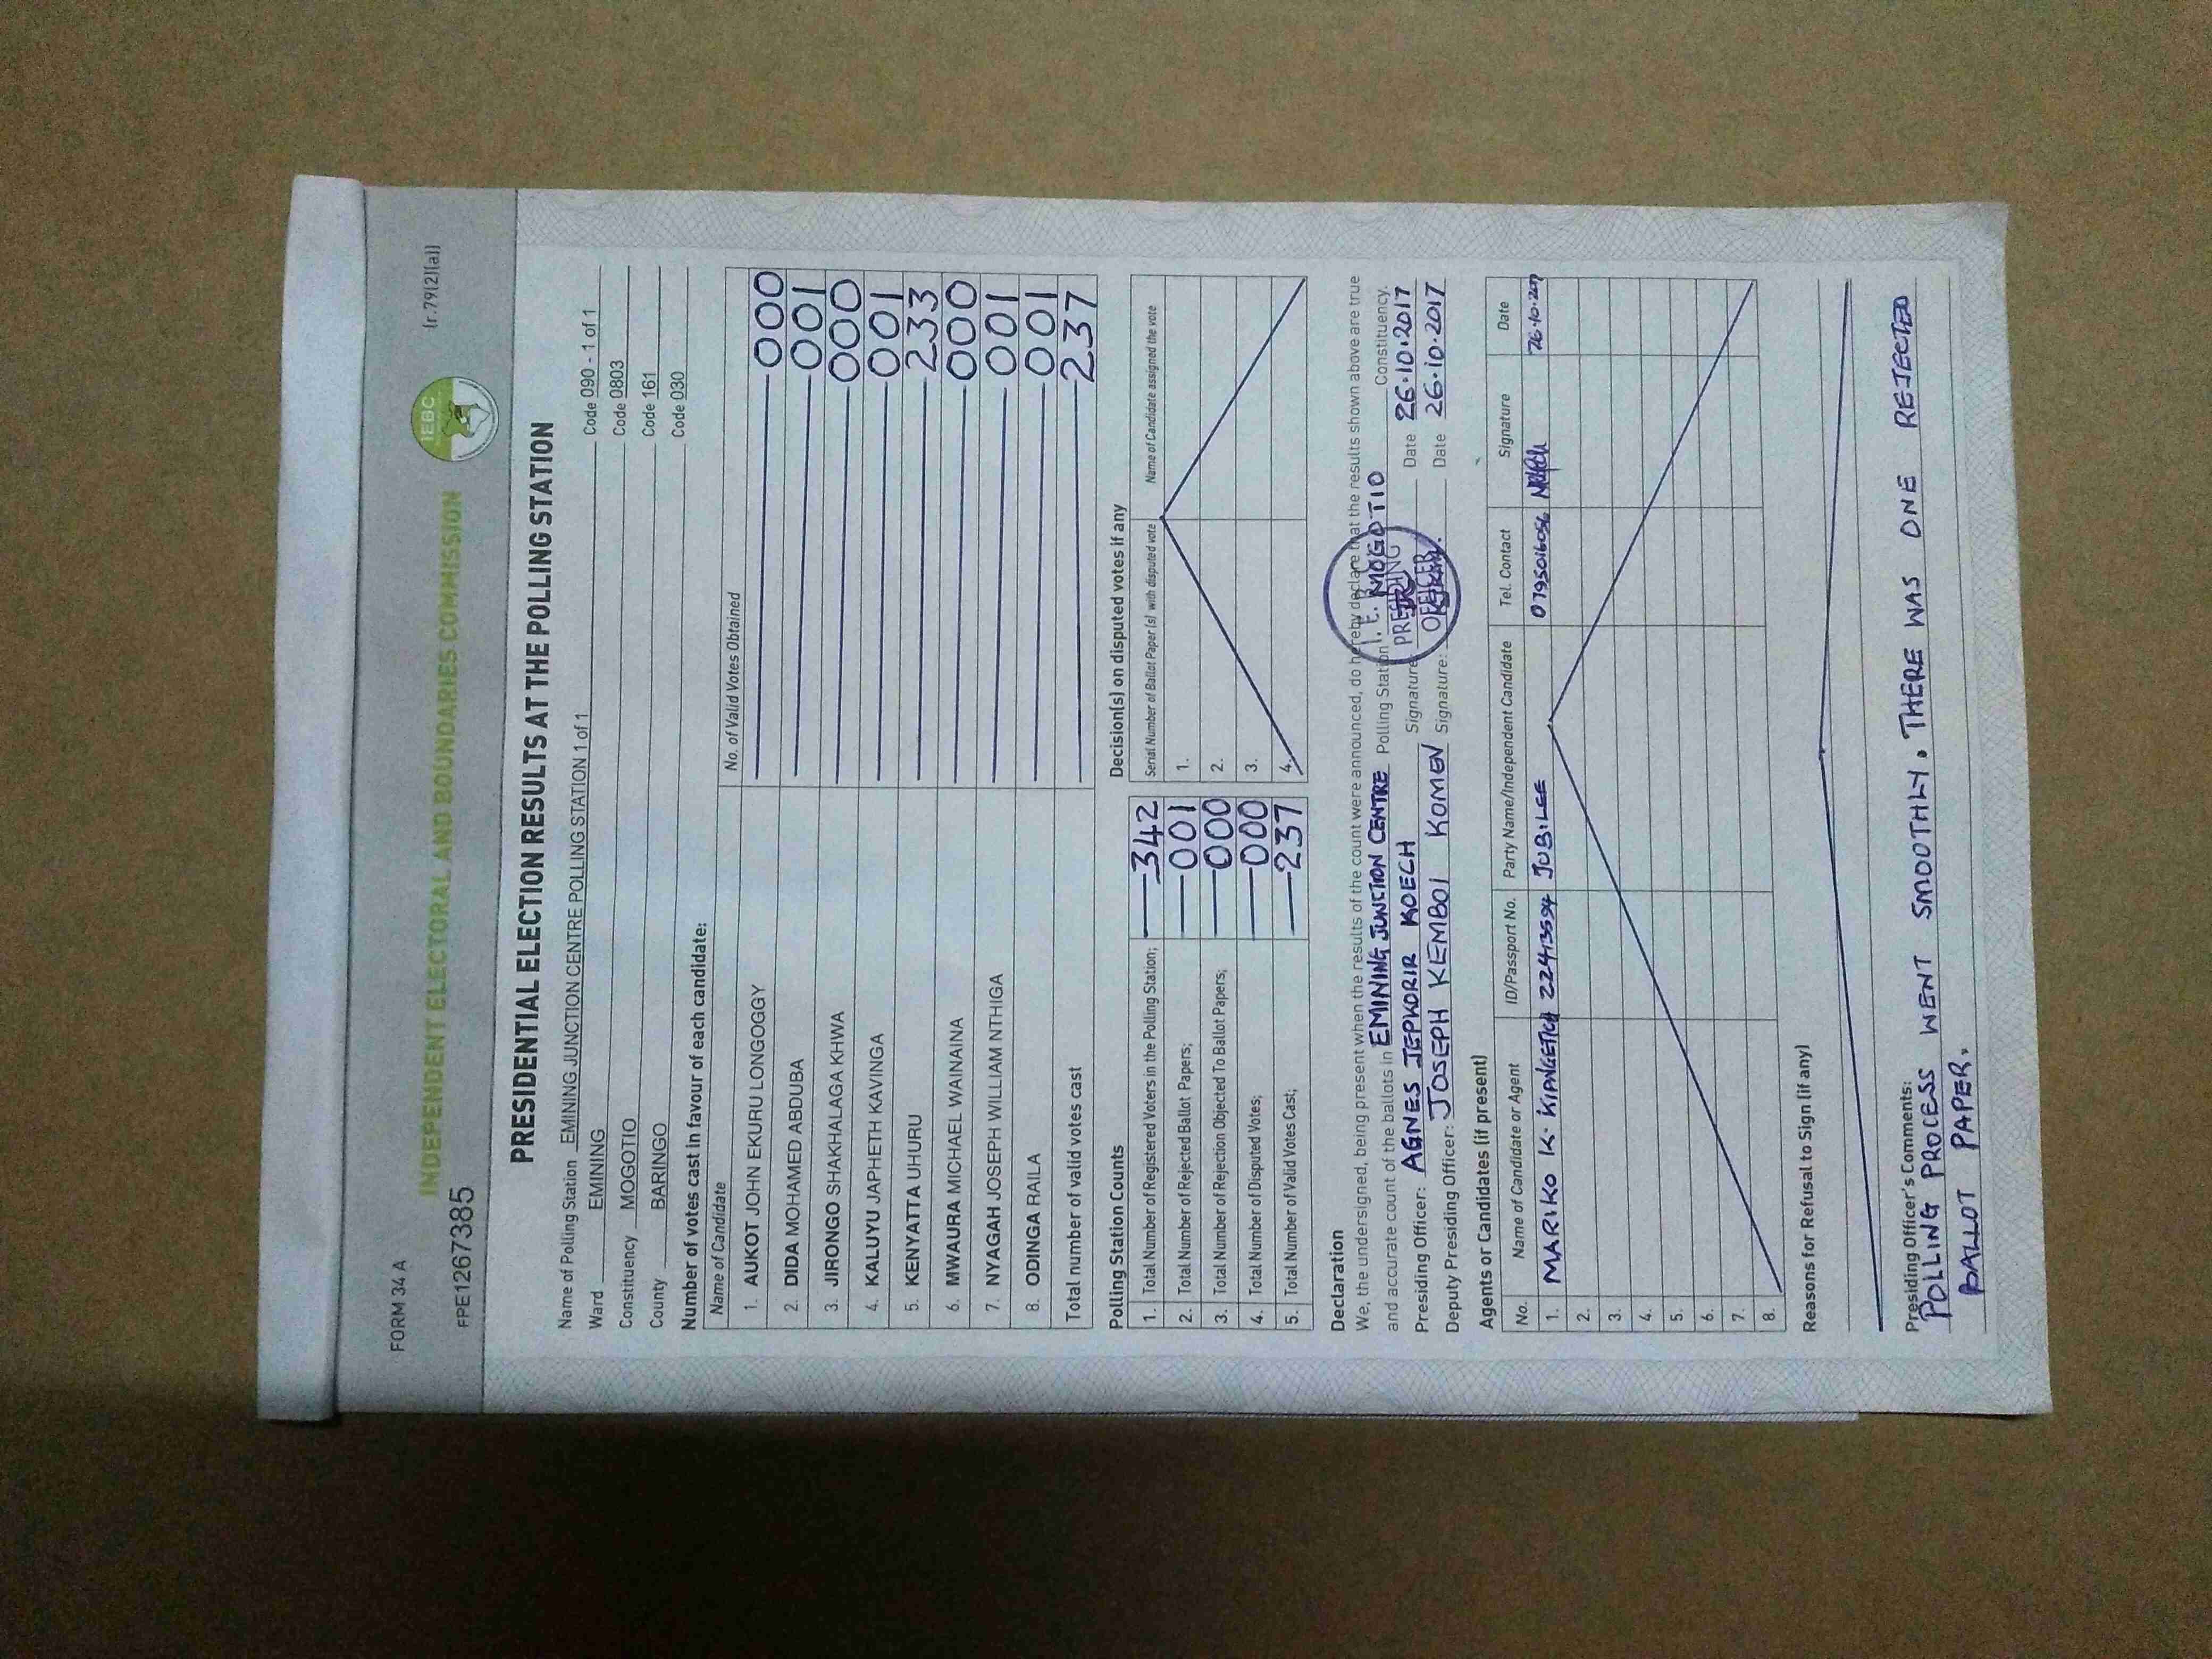 FORM 34 A
(r.79(2)(a))
INDEPENDENT ELECTORAL AND BOUNDARIES COMMISSION
IEBC
FPE1267385
PRESIDENTIAL ELECTION RESULTS AT THE POLLING STATION
Name of Polling Station EMINING JUNCTION CENTRE POLLING STATION 1 of 1 Code 090 - 1 of 1
Ward EMINING Code 0803
Constituency MOGOTIO Code 161
County BARINGO Code 030
Number of votes cast in favour of each candidate:
Name of Candidate No. of Valid Votes Obtained
1. AUKOT JOHN EKURU LONGOGGY 000
2. DIDA MOHAMED ABDUBA 001
3. JIRONGO SHAKHALAGA KHWA 000
4. KALUYU JAPHETH KAVINGA 001
5. KENYATTA UHURU 233
6. MWAURA MICHAEL WAINAINA 000
7. NYAGAH JOSEPH WILLIAM NTHIGA 001
8. ODINGA RAILA 001
Total number of valid votes cast 237
Polling Station Counts
1. Total Number of Registered Voters in the Polling Station; 342
2. Total Number of Rejected Ballot Papers; 001
3. Total Number of Rejection Objected To Ballot Papers; 000
4. Total Number of Disputed Votes; 000
5. Total Number of Valid Votes Cast; 237
Decision(s) on disputed votes if any
Serial Number of Ballot Paper (s) with disputed vote Name of Candidate assigned the vote
1.
2.
3.
4.
Declaration
We, the undersigned, being present when the results of the count were announced, do hereby declare that the results shown above are true
and accurate count of the ballots in EMINING JUNCTION CENTRE Polling Station MOGOTIO Constituency.
Presiding Officer: AGNES JEPKORIR KOECH Signature: Date 26.10.2017
Deputy Presiding Officer: JOSEPH KEMBOI KOMEN Signature: Date 26.10.2017
PRESIDING
OFFICER
Agents or Candidates (if present)
No. Name of Candidate or Agent ID/Passport No. Party Name/Independent Candidate Tel. Contact Signature Date
1. MARIKO K. KIPNGETCH 22413594 JUBILEE 0795016056 26.10.2017
2.
3.
4.
5.
6.
7.
8.
Reasons for Refusal to Sign (if any)
Presiding Officer's Comments:
POLLING PROCESS WENT SMOOTHLY. THERE WAS ONE REJECTED
BALLOT PAPER.